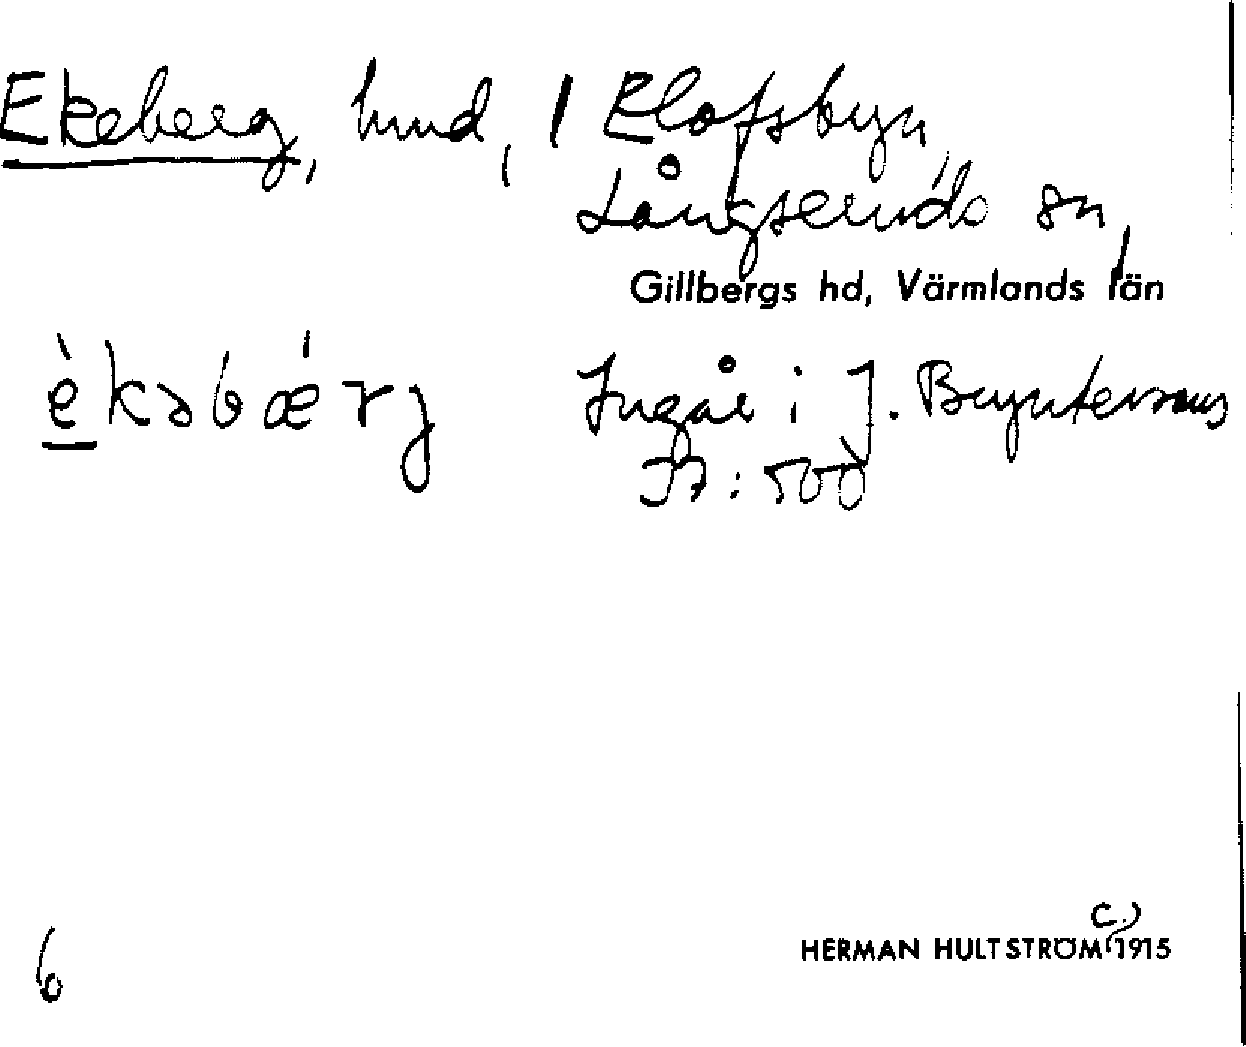 Ekeberg, hmd, 1 Elofsbyn,
Långseruds sn,
Gillbergs hd, Värmlands län
è̱kəbǽrj Ingår i J. Bryntesons
JB: 500
6
c.)
HERMAN HULTSTRÖM 1915